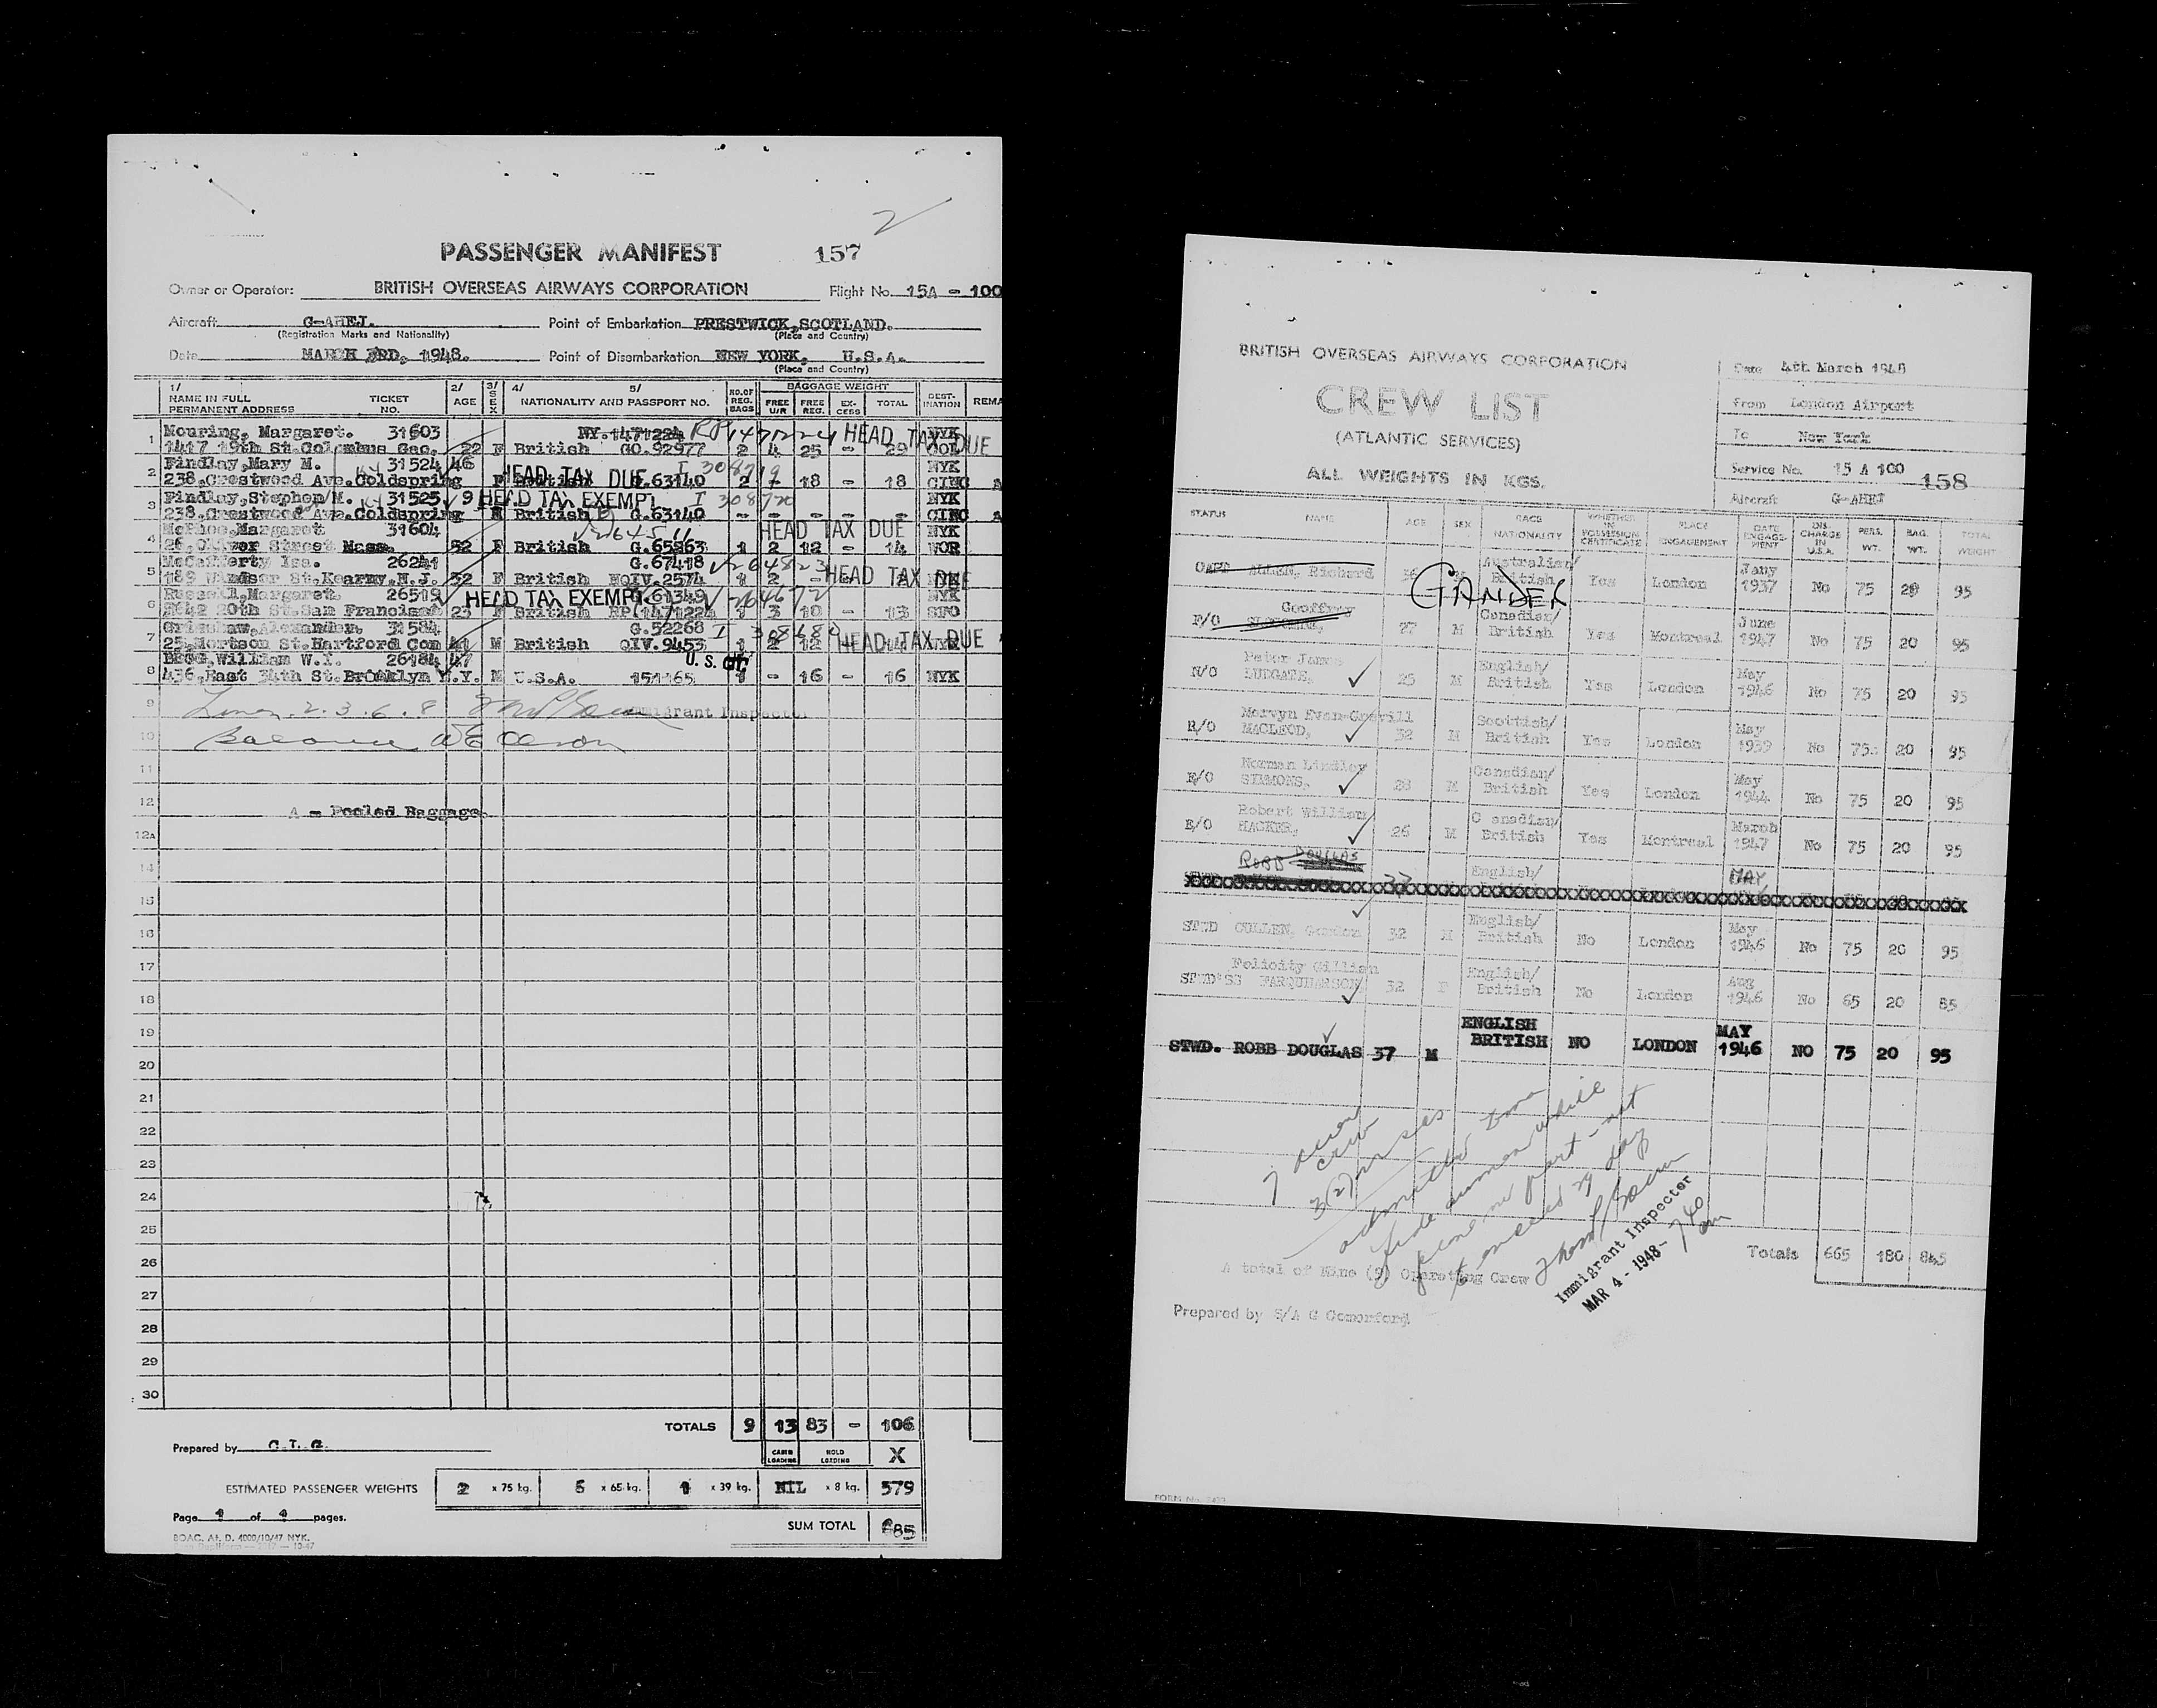 2
PASSENGER MANIFEST 157
Owner or Operator: BRITISH OVERSEAS AIRWAYS CORPORATION Flight No. 15A - 100
Aircraft G-AHEJ. Point of Embarkation PRESTWICK, SCOTLAND.
(Registration Marks and Nationality) (Place and Country)
Date MARCH 3RD, 1948. Point of Disembarkation NEW YORK, U.S.A.
(Place and Country)
1/ NAME IN FULL PERMANENT ADDRESS TICKET NO. 2/ AGE 3/ SEX 4/ 5/ NATIONALITY AND PASSPORT NO. NO. OF REG. BAGS BAGGAGE WEIGHT FREE U/R FREE REG. EXCESS TOTAL DESTINATION REMA
1 Mouring, Margaret. 31603 NY.1471224 RP 1471224 HEAD TAX DUE NYK
1417 19th St.Columbus Geo. 22 F British GO.92977 2 4 25 - 29 COL
2 Findlay, Mary M. 31524 46 HEAD TAX DUE I 308719 NYK
238, Crestwood Ave.Coldspring F British G.63140 2 - 18 - 18 CINC A
3 Findlay, Stephen M. 31525 9 HEAD TAX EXEMPT I 308720 NYK
238, Crestwood Ave.Coldspring M British G.63140 - - - - - CINC A
4 McPhee, Margaret 31604 HEAD TAX DUE NYK
26, Oliver Street Mass. 52 F British G.65863 1 2 12 - 14 WOR
5 McCafferty Isa. 26241 G.67418 V264823 HEAD TAX DUE
189 Windsor St.Kearny, N.J. 32 F British NQIV.2574 1 2 - - 2 NYK
6 Russell, Margaret. 26519 HEAD TAX EXEMPT G.61349 V 264672 NYK
2642 20th St.San Francisco 23 F British RP(147122 1 3 10 - 13 SFO
7 Grimshaw, Alexander. 31584 G.52268 I 308680 HEAD TAX DUE
25, Mortson St.Hartford Con 41 M British QIV.9453 1 2 12
8 BEGG, William W.I. 26184 47 U.S. Cit.
436, East 34th St.Brooklyn N.Y. M U.S.A. 151165 1 - 16 - 16 NYK
9 Immigrant Inspector
10 Olson
11
12 A - Pooled Baggage.
12A
14
15
16
17
18
19
20
21
22
23
24
25
26
27
28
29
30
TOTALS 9 13 83 - 106
Prepared by C.T.G. CABIN LOADING HOLD LOADING X
ESTIMATED PASSENGER WEIGHTS 2 x 75 kg. 6 x 65 kg. 1 x 39 kg. NIL x 8 kg. 579
Page 1 of 4 pages.
SUM TOTAL 685
BOAC. At. D. 4000/10/47 NYK.
BRITISH OVERSEAS AIRWAYS CORPORATION
CREW LIST
(ATLANTIC SERVICES)
ALL WEIGHTS IN KGS.
Date 4th March 1948
From London Airport
To New York
Service No. 15 A 100 158
Aircraft G-AHEJ
STATUS NAME AGE SEX RACE NATIONALITY WHETHER IN POSSESSION CERTIFICATE PLACE ENGAGEMENT DATE ENGAGEMENT DISCHARGE IN U.S.A. PERS. WT. BAG. WT. TOTAL WEIGHT
CAPT ALLEN, Richard 36 M Australian/ British Yes London Jany 1937 No 75 20 95
GANDER
F/O Geoffrey 27 M Canadian/ British Yes Montreal June 1947 No 75 20 95
N/O Peter James LUDGATE, 25 M English/ British Yes London May 1946 No 75 20 95
R/O Mervyn Evan-Grevill MACLEOD, 32 M Scottish/ British Yes London May 1939 No 75 20 95
E/O Norman Lindley SIMMONS, 28 M Canadian/ British Yes London May 1944 No 75 20 95
E/O Robert William HACKER, 26 M Canadian/ British Yes Montreal March 1947 No 75 20 95
ROBB DOUGLAS 37 English/ MAY
STWD CULLEN, Gordon 32 M English/ British No London May 1946 No 75 20 95
STWD'SS Felicity Gillian FARQUHARSON 32 F English/ British No London Aug 1946 No 65 20 85
STWD. ROBB DOUGLAS 37 M ENGLISH BRITISH NO LONDON MAY 1946 NO 75 20 95
7 alien
crew
3(2) nurses
admitted time
alien seaman while
port - not
to exceed 29 days
Immigrant Inspector
MAR 4 - 1948 - 740 am
Totals 665 180 845
A total of Nine (9) Operating Crew
Prepared by S/A G Comerford